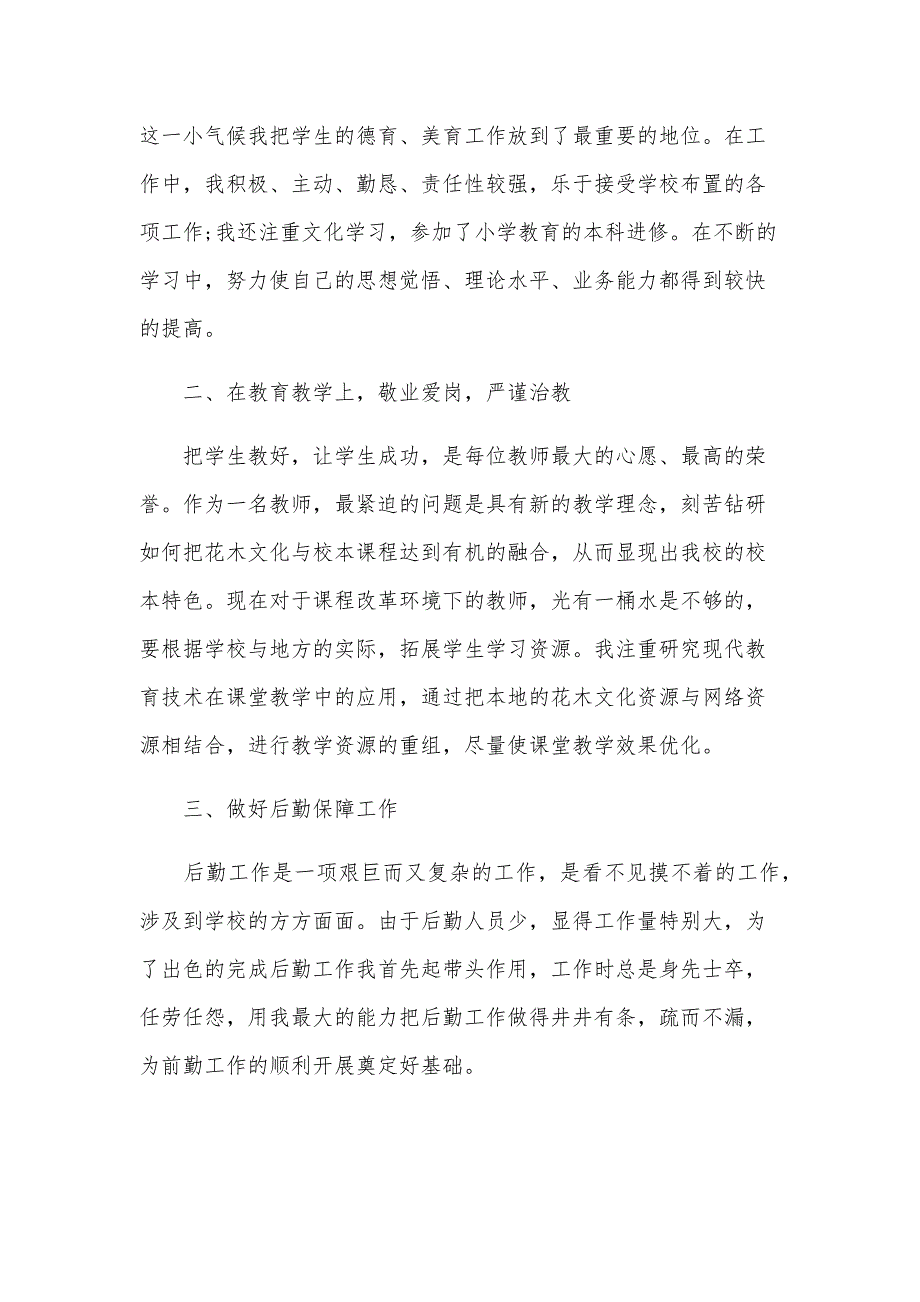 这一小气候我把学生的德育、美育工作放到了最重要的地位。在工
作中，我积极、主动、勤恳、责任性较强，乐于接受学校布置的各
项工作;我还注重文化学习，参加了小学教育的本科进修。在不断的
学习中，努力使自己的思想觉悟、理论水平、业务能力都得到较快
的提高。
二、在教育教学上，敬业爱岗，严谨治教
把学生教好，让学生成功，是每位教师最大的心愿、最高的荣
誉。作为一名教师，最紧迫的问题是具有新的教学理念，刻苦钻研
如何把花木文化与校本课程达到有机的融合，从而显现出我校的校
本特色。现在对于课程改革环境下的教师，光有一桶水是不够的，
要根据学校与地方的实际，拓展学生学习资源。我注重研究现代教
育技术在课堂教学中的应用，通过把本地的花木文化资源与网络资
源相结合，进行教学资源的重组，尽量使课堂教学效果优化。
三、做好后勤保障工作
后勤工作是一项艰巨而又复杂的工作，是看不见摸不着的工作，
涉及到学校的方方面面。由于后勤人员少，显得工作量特别大，为
了出色的完成后勤工作我首先起带头作用，工作时总是身先士卒，
任劳任怨，用我最大的能力把后勤工作做得井井有条，疏而不漏，
为前勤工作的顺利开展奠定好基础。